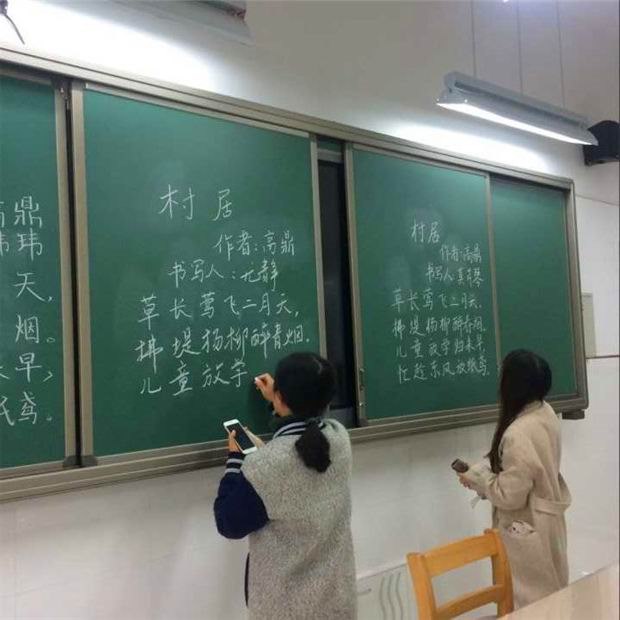 鼎
玮
天，
烟。
早，
鸢。
村居
作者:高鼎
书写人:尤静
草长莺飞二月天，
拂堤杨柳醉青烟.
儿童放学
村居
作者:高鼎
书写人 琴
草长莺飞二月天，
拂堤杨柳醉春烟,
儿童放学归来早,
忙趁东风放纸鸢.